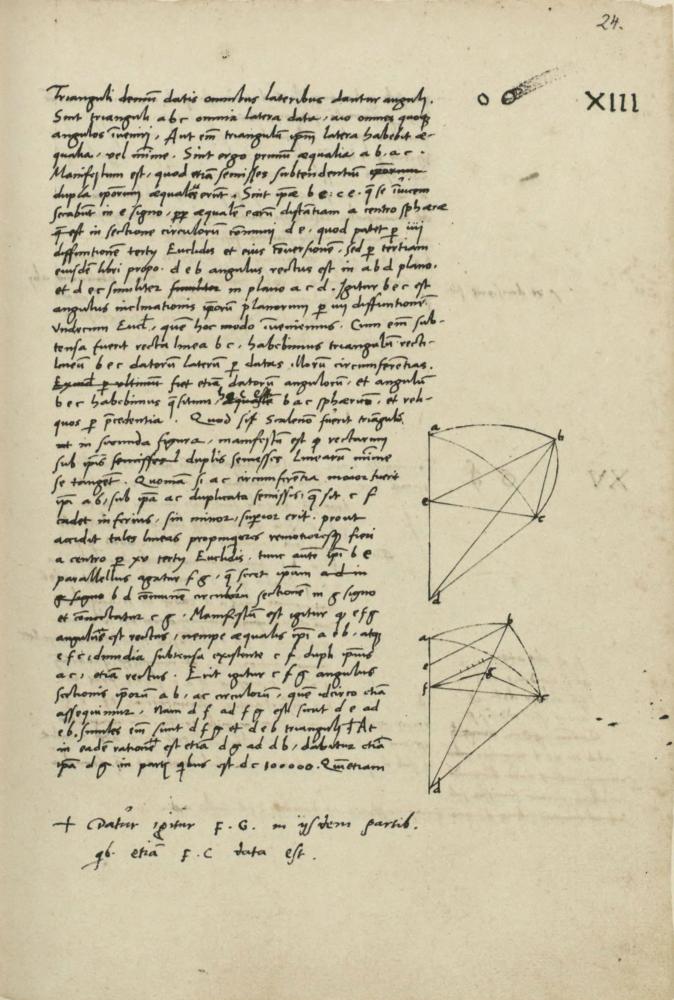 24.
XIII
Trianguli demũ datis omnibus lateribus dantur anguli.
Sint trianguli a b c omnia latera data, aio omnes quoqʒ
angulos iueniri. Aut em̃ triangulũ ipm̃ latera habebit æ-
qualia, vel minime. Sint ergo primũ æqualia a b, a c.
Manifestum est, quod etiã semisses subtendentiũ
dupla ipsorum æquales erũt. Sint ipsæ b e : c e. q̃ se iũicem
secabũt in e signo, ꝓp̃ æqualẽ earũ distãtiam a centro sphæræ
q̃ est in sectione circulorũ cõmuni d e, quod patet p̱ iiij
diffinitionẽ tertij Euclidis et eius cõuersionẽ. Sed p̱ tertiam
eiusdẽ libri propo. d e b angulus rectus est in a b d plano,
et d e c similiter in plano a c d. Igitur b e c est
angulus inclinationis ipsorũ planorum p̱ iiij diffinitionẽ
vndecimi Eucl., quẽ hoc modo iueniemus. Cum em̃ sub-
tensa fuerit recta linea b c, habebimus triangulũ recti-
lineũ b e c datorũ laterũ p̱ datas illorũ circumferẽtias.
fiet etiã datorũ angulorũ, et angulũ
b e c habebimus q̃situm, b a c sphæricũ, et reli-
quos p̱ p̃cedentia. Quod si Scalenõ fuerit triangulũ
ut in secunda figura, manifestũ est ꝙ rectarum
sub ipsis duplis semisses linearum minime
se tanget. Quoniã si a c circumferẽtia maior fuerit
ipã a b, sub ipã a c duplicata semissis, q̃ sit c f
cadet inferius, sin minor, sup̱ior erit. prout
accidit tales lineas propinquiores remotioresqʒ fieri
a centro p̱ xv tertij Euclidis. tunc autẽ ipi b e
parallelus agatur f g, q̃ secet ipsam
b d cõmunẽ circulorũ sectionẽ in g signo
et connectatur c g. Manifestũ est igitur ꝙ e f g
angulus est rectus, nempe æqualis ipi a e b, atqʒ
e f c, dimidia subtensa existente c f dupli ipsius
a c, etiã rectus. Erit igitur c f g angulus
sectionis ipsorũ a b, a c circulorũ, quẽ idcirco etiã
assequimur. Nam d f ad f g est sicut d e ad
e b. similes em̃ sunt d f g et d e b trianguli + At
in eadẽ rationẽ est etiã d g ad d b, dabitur etiã
ipã d g in partibꝰ quibus est d c 100000. Quin etiam
+ Datur igitur F. G. in ijsdem partib.
qb. etiã F. C data est.
a
b
e
c
d
a
b
e
f
g
c
d